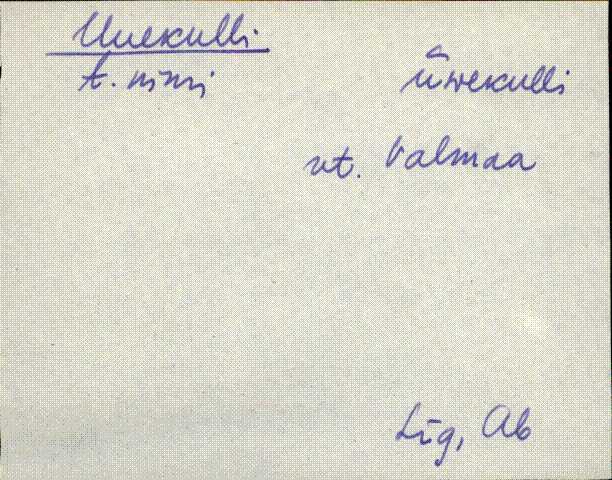 Uuekulli
t. nimi
ūwekulli
vt. Valmaa
Lüg, Ab